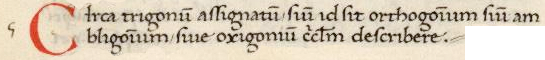 CIrca trigonū assignatū / siū id sit orthogōium siū am
bligōium / siue oxigoniū c̄clm describere.